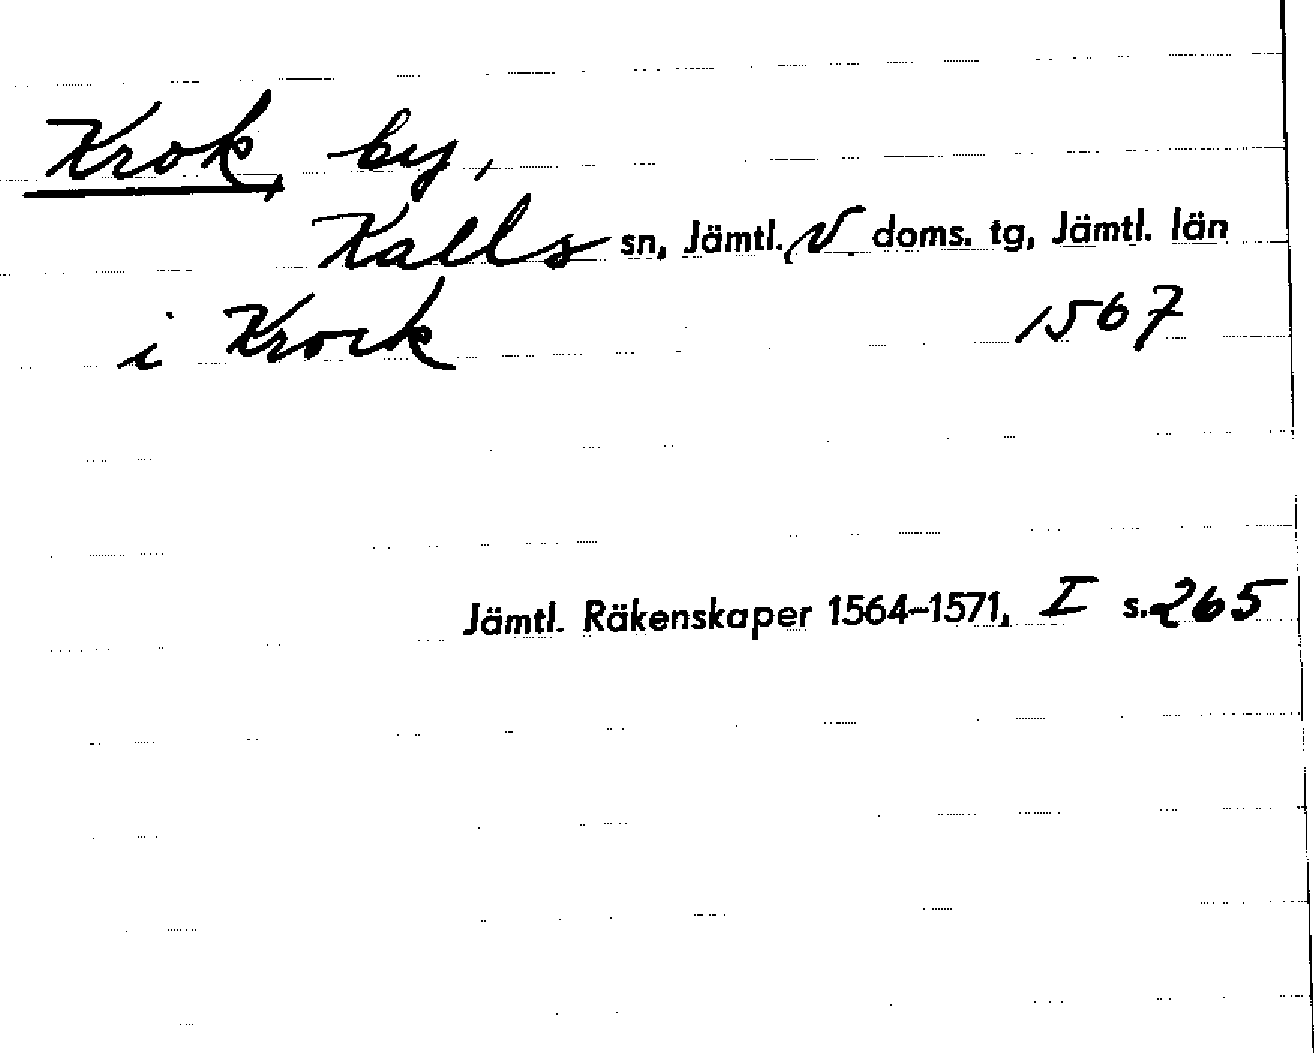 Krok, by,
Kalls sn, Jämtl. V doms. tg, Jämtl. län
i Krock 1567
Jämtl. Räkenskaper 1564-1571, I s. 265